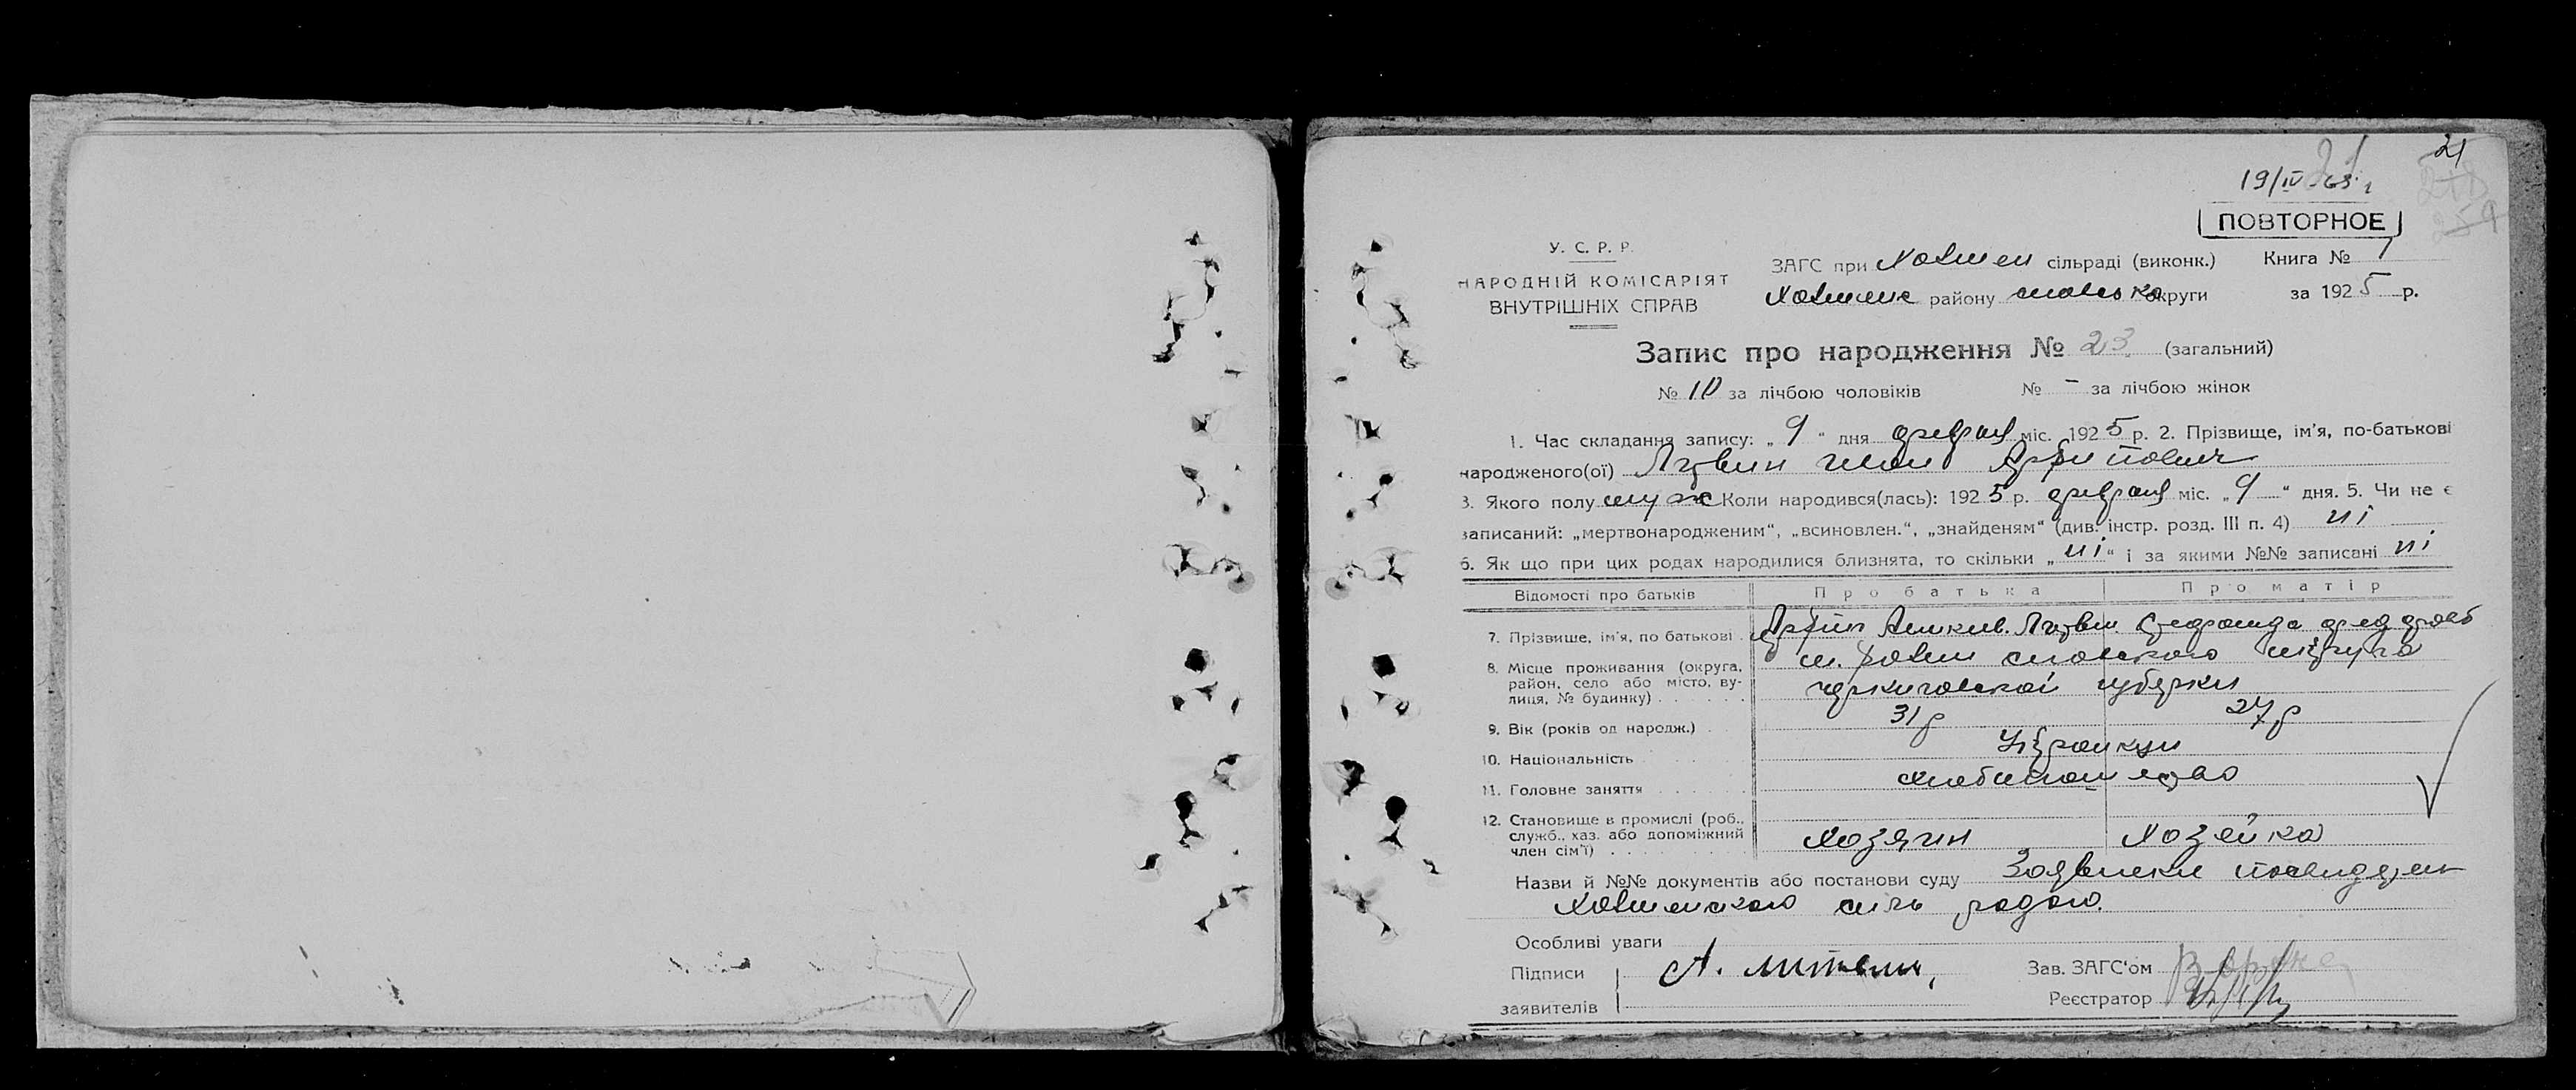 21
19/IV-63 г
ПОВТОРНОЕ
259
У. С. Р. Р.
НАРОДНІЙ КОМІСАРІЯТ
ВНУТРІШНІХ СПРАВ
ЗАГС при Холмен сільраді (виконк.) Книга № 1
Холменс району сновско округи за 1925 р.
Запис про народження № 23 (загальний)
№ 10 за лічбою чоловіків № - за лічбою жінок
1. Час складання запису: „ 9 “ дня февраля міс. 1925 р. 2. Прізвище, ім'я, по-батькові
народженого(ої) Литвин Иван Архипович
3. Якого полу муж Коли народився(лась): 1925 р. февраля міс. „ 9 “ дня. 5. Чи не є
записаний: „мертвонародженим“, „всиновлен.“, „знайденям“ (див. інстр. розд. III п. 4) ні
6. Як що при цих родах народилися близнята, то скільки „ ні “ і за якими №№ записані ні
Відомості про батьків Про батька Про матір
7. Прізвище, ім'я, по батькові Архип Литвин
8. Місце проживання (округа, район, село або місто, вулиця, № будинку) м. Холми сновского округа
черниговской губернии
9. Вік (років од народж.) 31 р 27 р
10. Національність Украинцы
11. Головне заняття хлебопашество
12. Становище в промислі (роб., служб., хаз. або допоміжний член сім'ї) Хозяин Хозяйка
Назви й №№ документів або постанови суду
Холменского радою.
Особливі уваги
Підписи А. Литвин Зав. ЗАГС'ом
заявителів Реєстратор